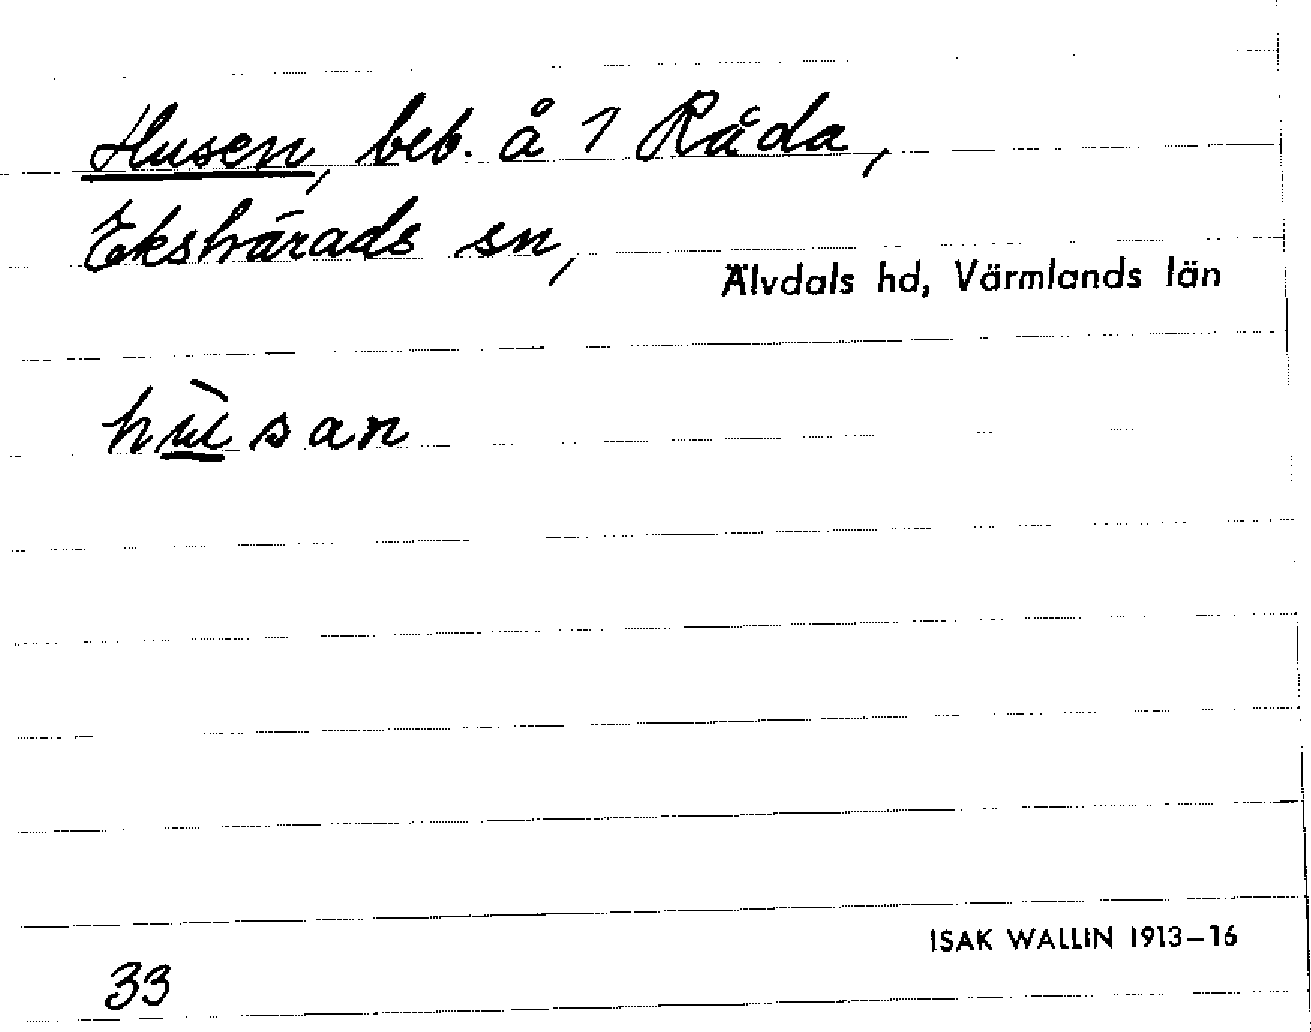 Husen, beb. å 1 Råda,
Ekshärads sn,
Älvdals hd, Värmlands län
hùsan
33
ISAK WALLIN 1913–16